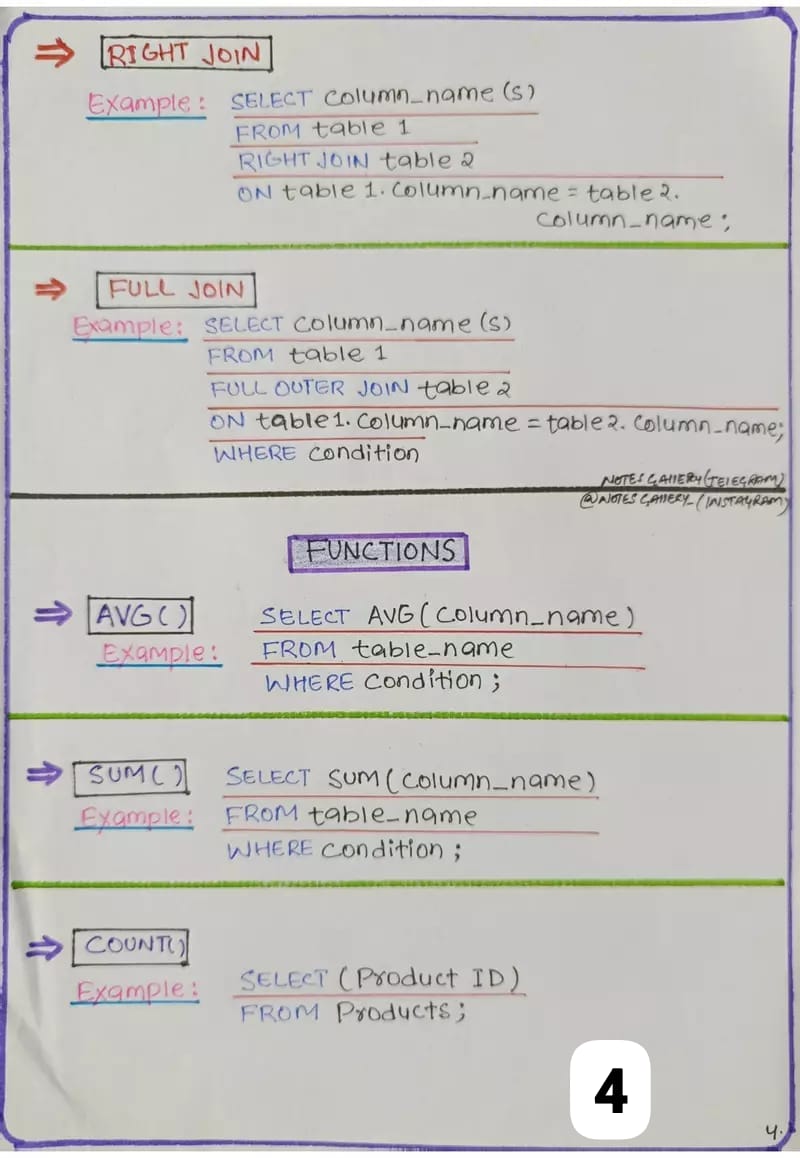 ⇒ RIGHT JOIN
Example: SELECT Column_name (s)
FROM table 1
RIGHT JOIN table 2
ON table 1. Column_name = table 2.
Column_name ;
⇒ FULL JOIN
Example: SELECT Column_name (s)
FROM table 1
FULL OUTER JOIN table 2
ON table 1. Column_name = table 2. Column_name;
WHERE Condition
NOTES GALLERY (TELEGRAM)
@NOTES GALLERY_ (INSTAGRAM)
FUNCTIONS
⇒ AVG() SELECT AVG (Column_name)
Example: FROM table_name
WHERE Condition ;
⇒ SUM() SELECT SUM (Column_name)
Example: FROM table_name
WHERE Condition ;
⇒ COUNT()
Example: SELECT (Product ID)
FROM Products ;
4
4.